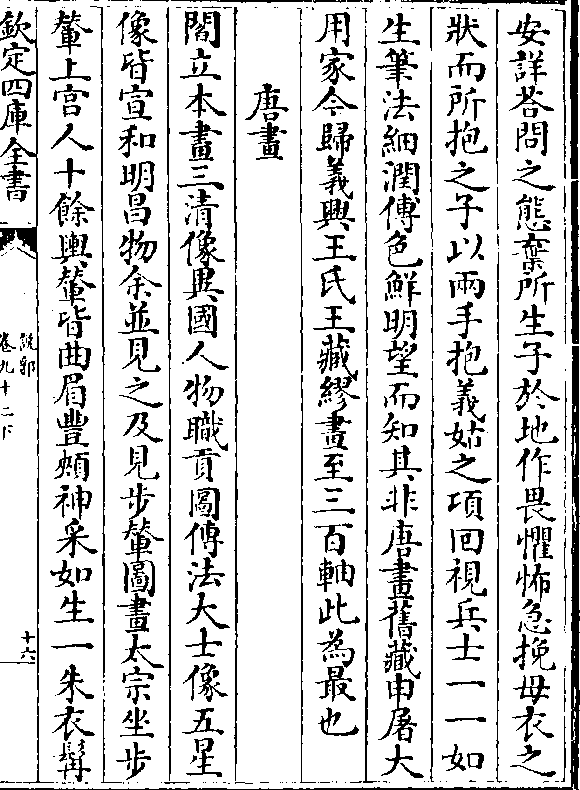 安詳荅問之態棄所生子於地作畏懼怖急挽母衣之
狀而所抱之子以兩手抱義姑之項回視兵士一一如
生筆法細潤傅色鮮明望而知其非唐畫舊藏申屠大
用家今歸義興王氏王藏繆畫至三百軸此為最也
唐畫
閻立本畫三清像異國人物職貢圖傅法大士像五星
像皆宣和明昌物余並見之及見步輦圖畫太宗坐步
輦上宫人十餘輿輦皆曲眉豐頰神采如生一朱衣髯
欽定四庫全書
說郛
卷九十二下
十六